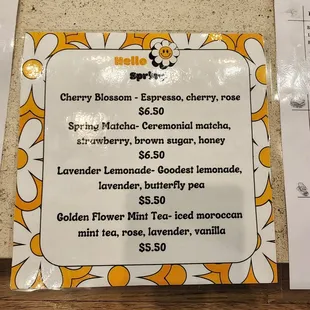 Hello
Spring
Cherry Blossom - Espresso, cherry, rose
$6.50
Spring Matcha- Ceremonial matcha,
strawberry, brown sugar, honey
$6.50
Lavender Lemonade- Goodest lemonade,
lavender, butterfly pea
$5.50
Golden Flower Mint Tea- iced moroccan
mint tea, rose, lavender, vanilla
$5.50